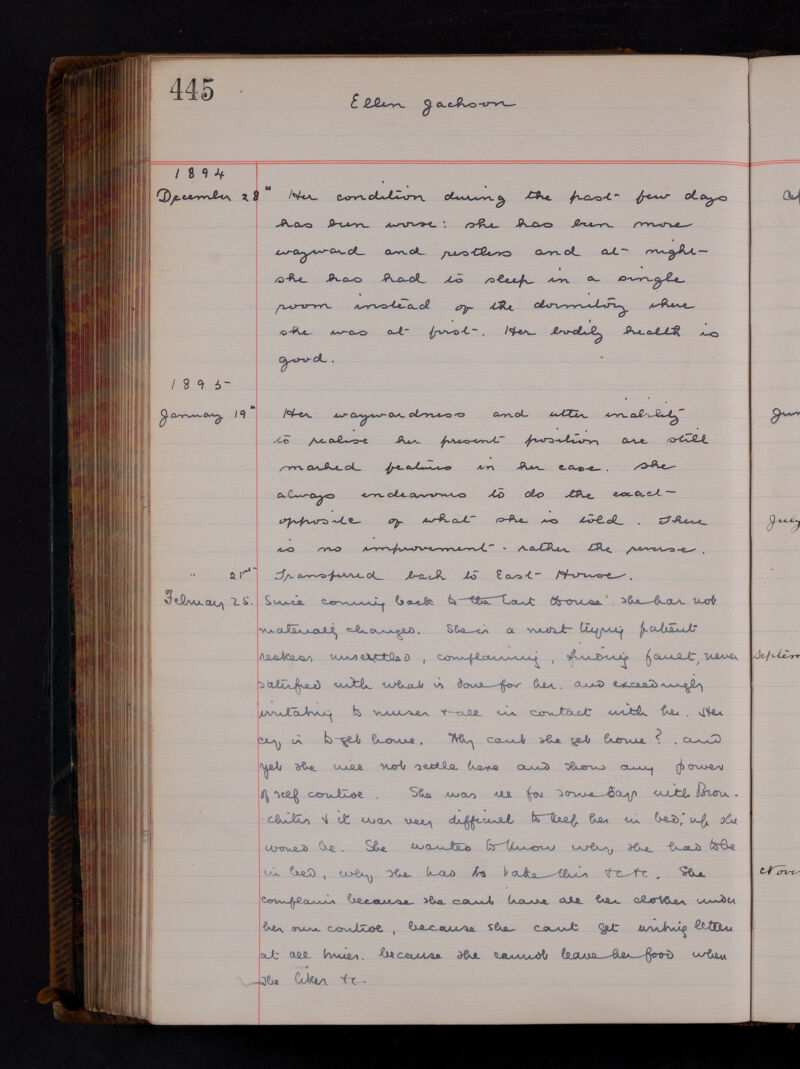 445
Ellen Jackson
1894
December 28th Her condition during the past few days
has been worse: she has been more
wayward and restless and at night
she has had to sleep in a single
room instead of the dormitory where
she was at first. Her bodily health is
good.
1895
January 19th Her waywardness and utter inability
to realise her present position are still
marked features in her case. She
always endeavours to do the exact
opposite of what she is told. There
is no improvement - rather the reverse.
" 21st Transferred back to East House.
February 25. Since coming back to the East House she has not
materially changed. She is a most trying patient
restless unsettled, complaining, finding fault, never
satisfied with what is done for her. and exceedingly
irritating to nurses & all in contact with her. Her
cry is to get home. Why cant she get home? . and
yet she will not settle here and show any power
of self control. She was ill for some days with Bron-
-chitis & it was very difficult to keep her in bed; up she
would be. She wanted to know why she had to be
in bed, why she had to take this &c &c. She
complains because she cant have all her clothes under
her own control, because she cant get writing letters
at all times. because she cannot leave her food when
she likes &c.
July
Septem
Nove